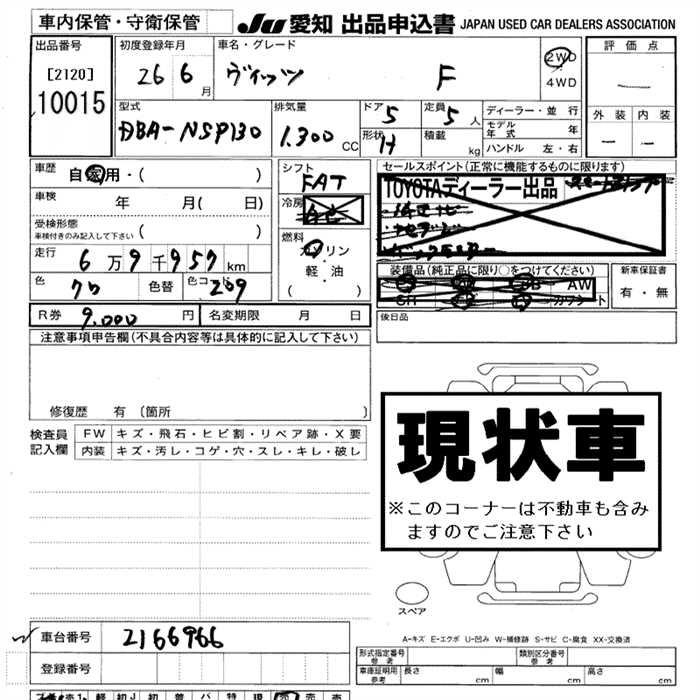 車内保管・守衛保管
JU 愛知 出品申込書 JAPAN USED CAR DEALERS ASSOCIATION
出品番号
[2120]
10015
初度登録年月
26 6 月
車名・グレード
ヴィッツ F
2WD
4WD
評価点
—
外装 内装
— —
型式
DBA-NSP130
排気量
1.300 CC
ドア 5
形状 H
定員 5 人
積載 kg
ディーラー・並行
モデル年式 年
ハンドル 左・右
車歴
自家用・( )
車検
年 月( 日)
受検形態
車検付きのみ記入して下さい ( )
走行
6万9千957km
色 色替 色コード 209
シフト
FAT
冷房
AC
燃料
ガソリン
軽・油
( )
セールスポイント(正常に機能するものに限ります)
TOYOTAディーラー出品
装備品(純正品に限り○をつけてください)
SR AW
新車保証書
有・無
後日品
R券 9.000 円 名変期限 月 日
注意事項申告欄(不具合内容等は具体的に記入して下さい)
修復歴 有〔箇所 〕
検査員記入欄
FW キズ・飛石・ヒビ割・リペア跡・X要
内装 キズ・汚レ・コゲ・穴・スレ・キレ・破レ
現状車
※このコーナーは不動車も含み
ますのでご注意下さい
スペア
A-キズ E-エクボ U-凹み W-補修跡 S-サビ C-腐食 XX-交換済
車台番号 2166966
登録番号
形式指定番号 参考
類別区分番号 参考
車庫証明用 参考 長さ cm 幅 cm 高さ cm